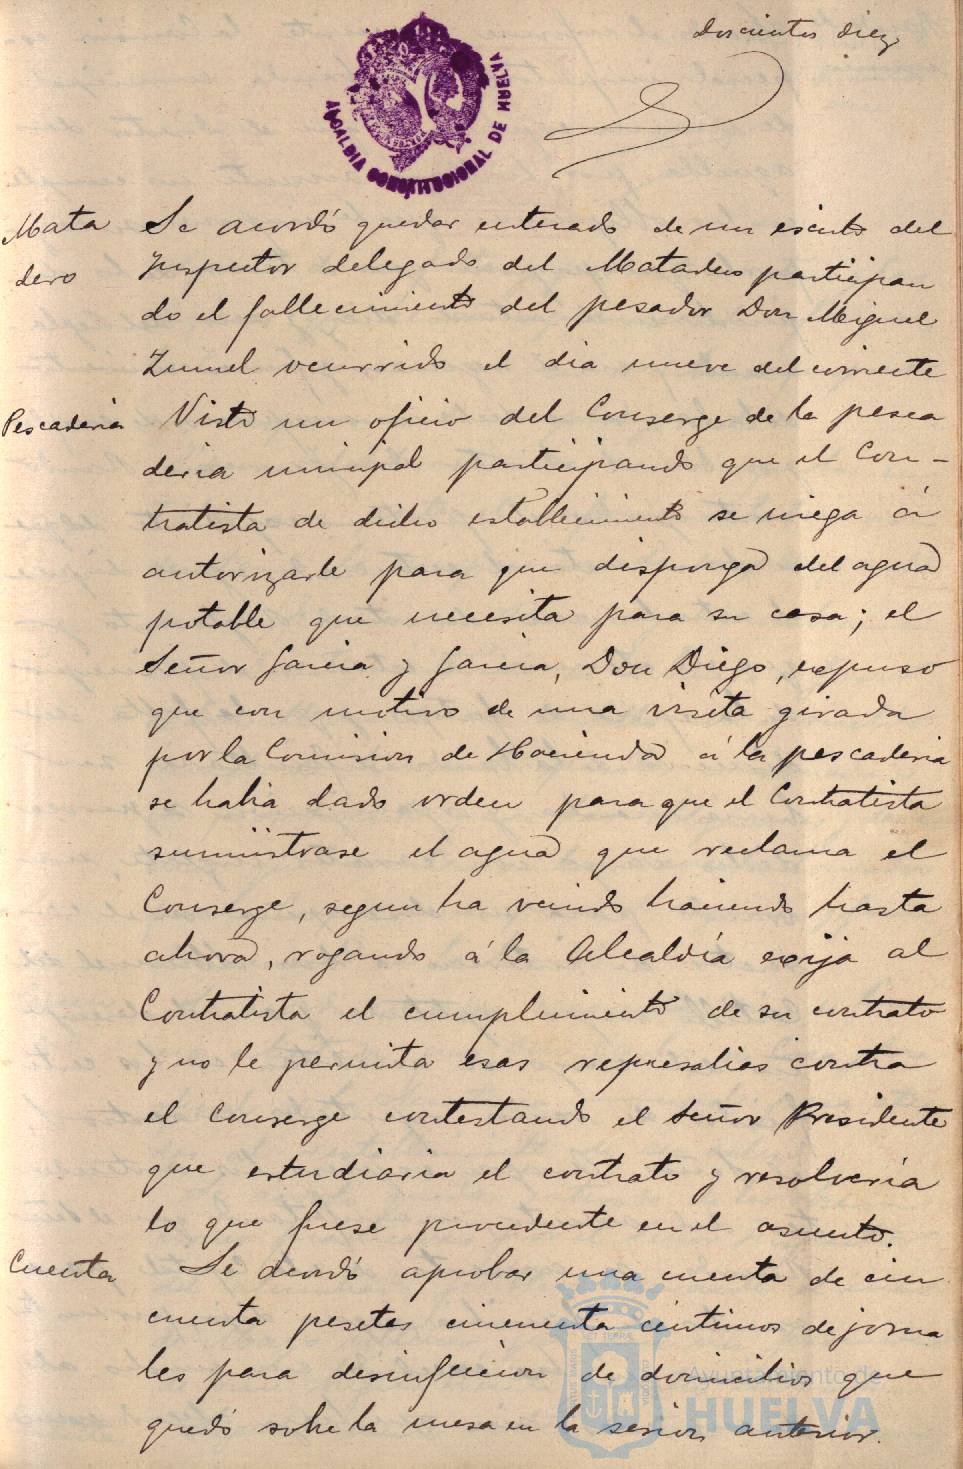 Doscientos diez
ALCALDIA CONSTITUCIONAL DE HUELVA
Mata
dero
Se acordó quedar enterado de un escrito del
Inspector delegado del Matadero participan
do el fallecimiento del pesador Don Miguel
Zumel ocurrido el dia nueve del corriente
Pescaderia
Visto un oficio del Conserge de la pesca
deria municipal participando que el Con-
tratista de dicho establecimiento se niega á
autorizarle para que disponga del agua
potable que necesita para su casa; el
Señor Garcia y Garcia, Don Diego, expuso
que con motivo de una visita girada
por la Comision de Hacienda á la pescaderia
se habia dado orden para que el Contratista
suministrase el agua que reclama el
Conserge, segun ha venido haciendo hasta
ahora, rogando á la Alcaldía exija al
Contratista el cumplimiento de su contrato
y no le permita esas represalias contra
el Conserge contestando el Señor Presidente
que estudiaria el contrato y resolvería
lo que fuese procedente en el asunto.
Cuenta
Se acordó aprobar una cuenta de cin
cuenta pesetas cincuenta centimos de jorna
les para desinfeccion de domicilios que
quedó sobre la mesa en la sesion anterior.
Ayuntamiento de
HUELVA